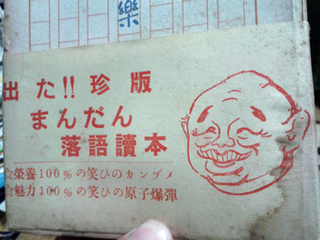 樂
出た!!珍版
まんだん
落語讀本
☆榮養100%の笑ひのカンヅメ
☆魅力100%の笑ひの原子爆彈